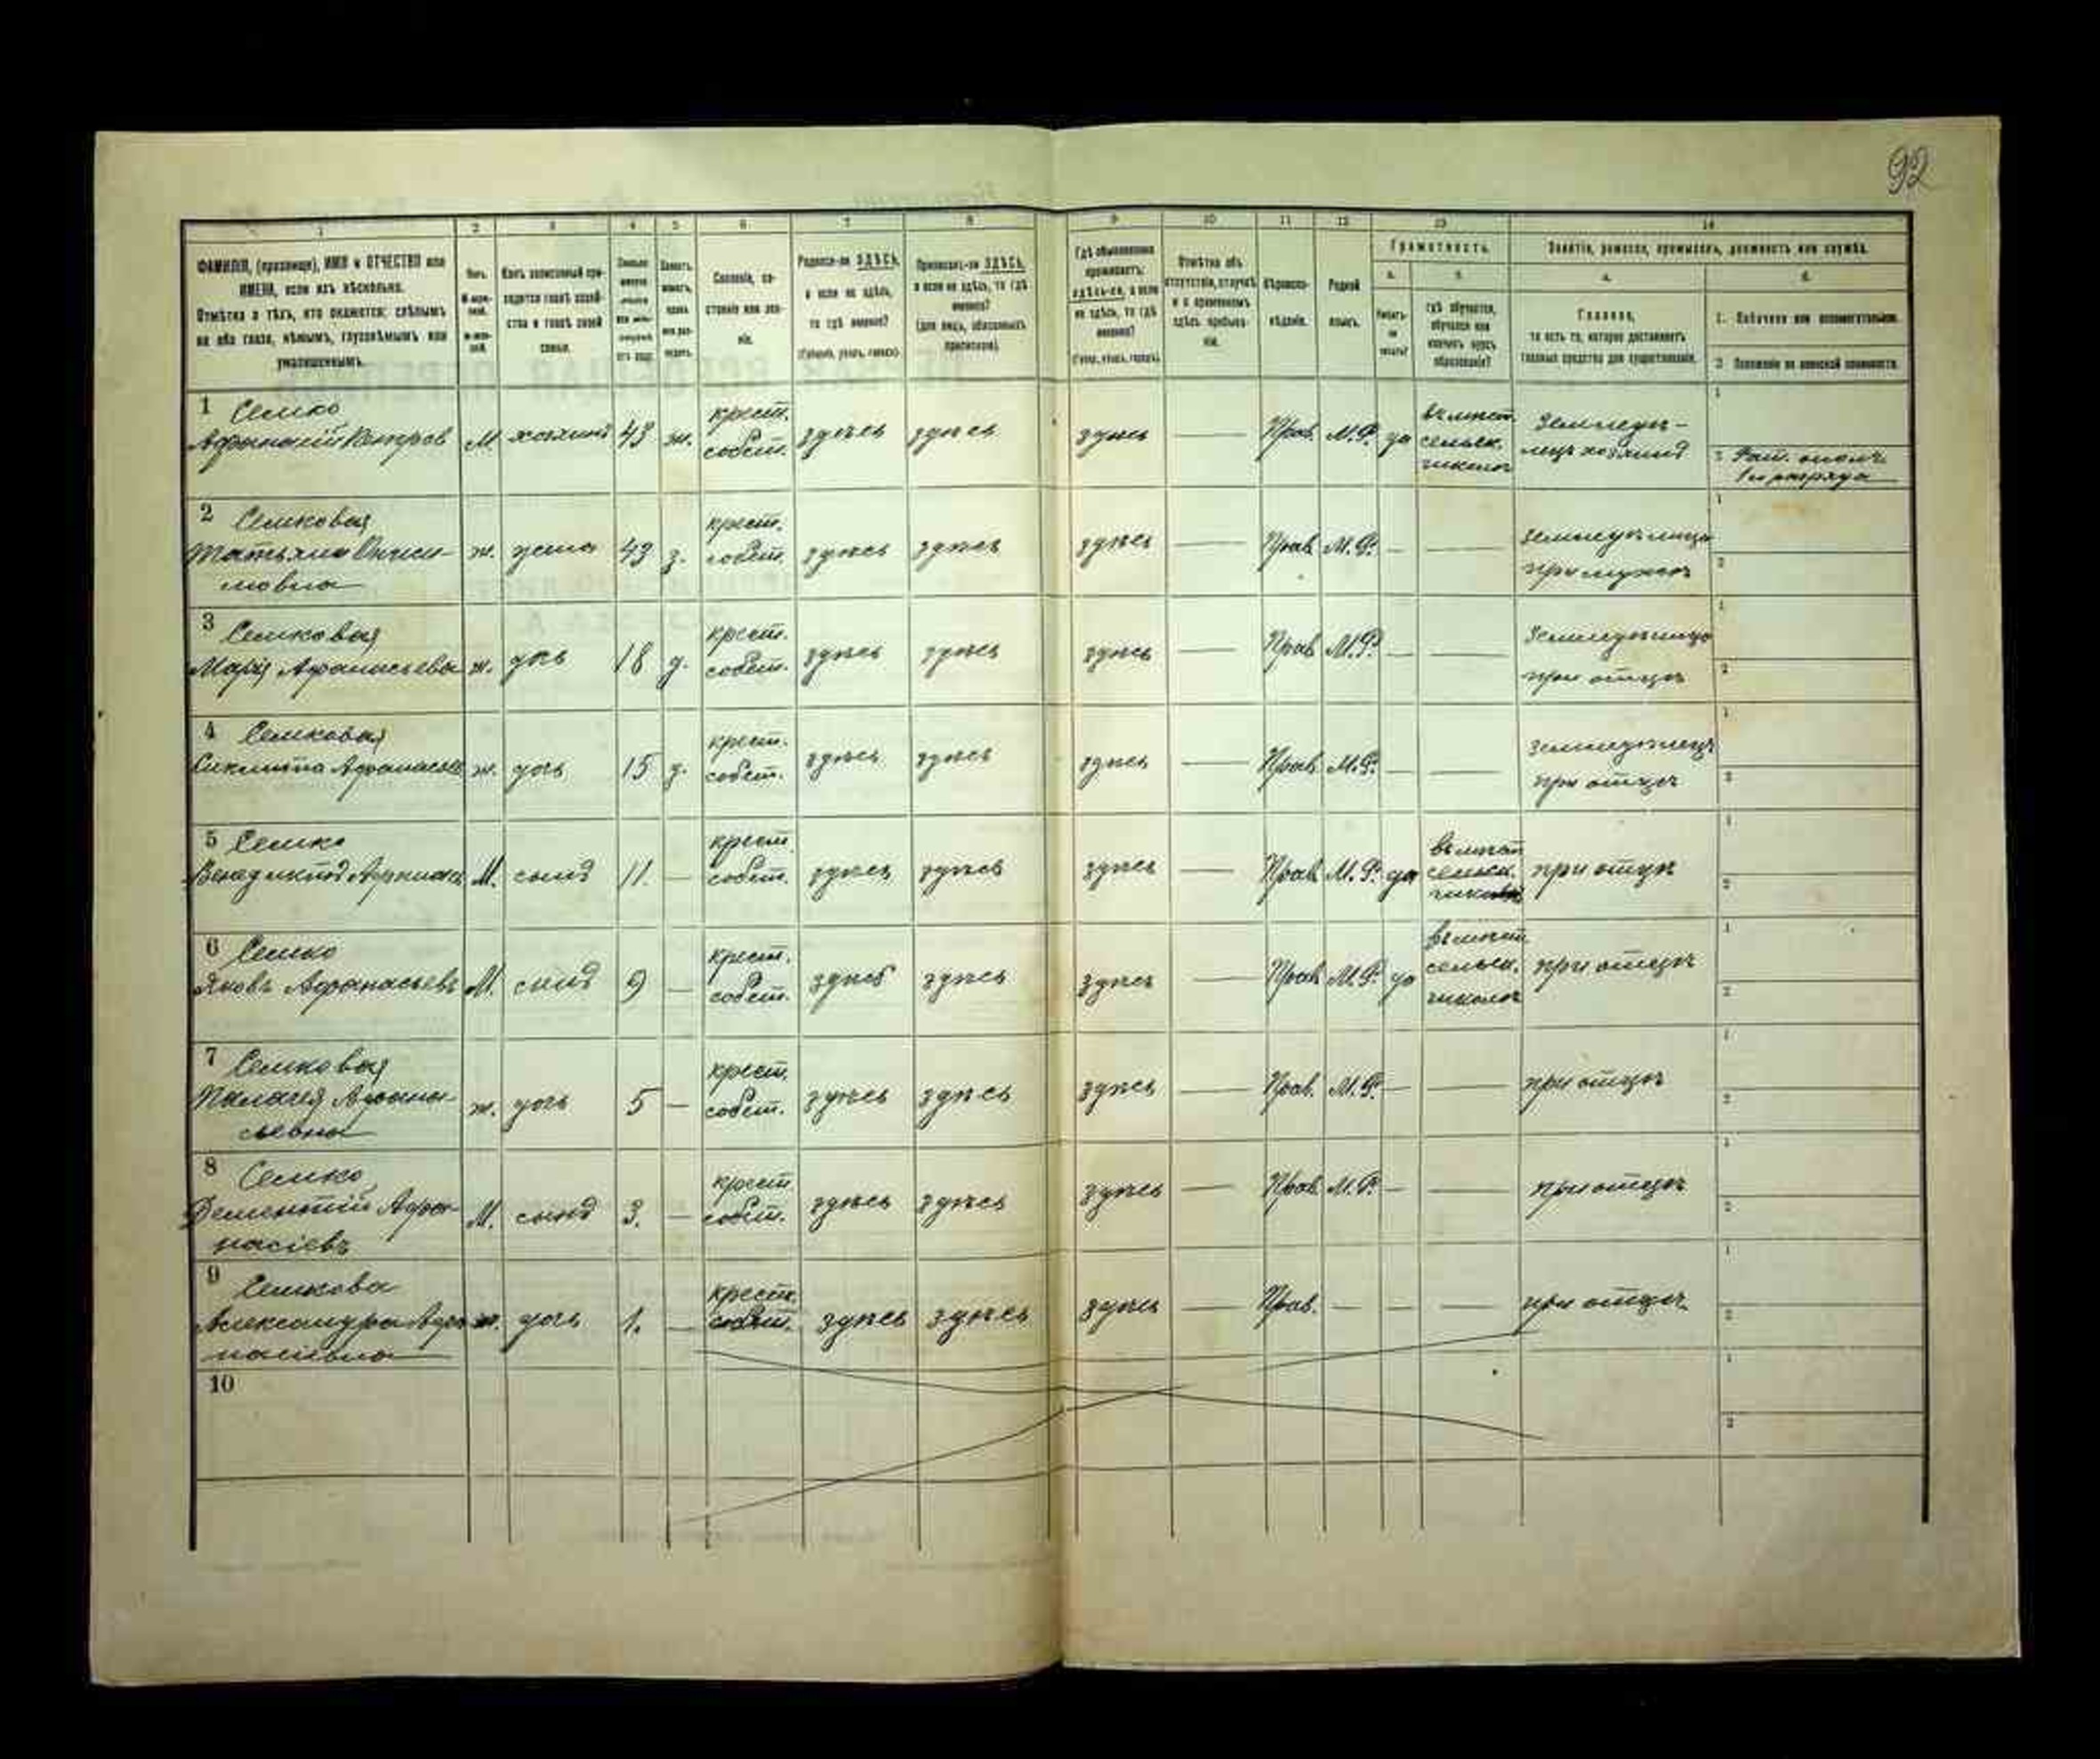 92
1 2 3 4 5 6 7 8 9 10 11 12 13 14
ФАМИЛІЯ, (прозвище), ИМЯ и ОТЧЕСТВО или
ИМЕНА, если ихъ нѣсколько.
Отмѣтка о тѣхъ, кто окажется: слѣпымъ
на оба глаза, нѣмымъ, глухонѣмымъ или
умалишеннымъ.
Полъ.
Какъ записанный при-
ходится главѣ хозяй-
ства и главѣ своей
семьи.
Сословіе, со-
стояніе или зва-
ніе.
Родился-ли ЗДѢСЬ,
а если не здѣсь,
то гдѣ именно?
(Губернія, уѣздъ, городъ)
Приписанъ-ли ЗДѢСЬ,
а если не здѣсь, то гдѣ
именно?
(для лицъ, обязанныхъ
припискою).
Гдѣ обыкновенно
проживаетъ:
здѣсь-ли, а если
не здѣсь, то гдѣ
именно?
(Губер., уѣздъ, городъ).
Отмѣтка объ
отсутствіи, отлучкѣ
и о временномъ
здѣсь пребыва-
ніи.
Вѣроиспо-
вѣданіе.
Родной
языкъ.
Грамотность.
а. б.
Умѣетъ-
ли
читать?
гдѣ обучается,
обучался или
кончилъ курсъ
образованія?
Занятіе, ремесло, промыселъ, должность или служба.
а. б.
Главное,
то есть то, которое доставляетъ
главныя средства для существованія.
1. Побочное или вспомогательное.
2. Положеніе по воинской повинности.
1 Семко
Афанасій Петровъ М. хозяинъ 43 ж. крест. собст. здѣсь здѣсь здѣсь — Прав. М.Р. да въ мѣст. сельск. школѣ Земледѣ-
лецъ хозяинъ
1
2 Рат. ополч.
1го разряда
2 Семковая
Татьяна Ониси-
мовна ж. жена 43 з. крест. собст. здѣсь здѣсь здѣсь — Прав. М.Р. — — земледѣлица
при мужѣ
1
2
3 Семковая
Марія Афанасьева ж. дочь 18 д. крест. собст. здѣсь здѣсь здѣсь — Прав. М.Р. — — Земледѣлица
при отцѣ
1
2
4 Семковая
Афанасьев ж. дочь 15 д. крест. собст. здѣсь здѣсь здѣсь — Прав. М.Р. — —
при отцѣ
1
2
5 Семко
Венедиктъ Афанасьев М. сынъ 11. — крест. собст. здѣсь здѣсь здѣсь — Прав. М.Р. да въ мѣст. сельск. школѣ при отцѣ
1
2
6 Семко
Яковъ Афанасьевъ М. сынъ 9 — крест. собст. здѣсь здѣсь здѣсь — Прав. М.Р. да въ мѣст. сельск. школѣ при отцѣ
1
2
7 Семковая
Палагея Афана-
сьевна ж. дочь 5 — крест. собст. здѣсь здѣсь здѣсь — Прав. М.Р. — — при отцѣ
1
2
8 Семко
Дементій Афа-
насіевъ М. сынъ 3. — крест. собст. здѣсь здѣсь здѣсь — Прав. М.Р. — — при отцѣ
1
2
9 Семкова
Александра Афа-
насіевна ж. дочь 1. — крест. собст. здѣсь здѣсь здѣсь — Прав. — — — при отцѣ.
1
2
10
1
2